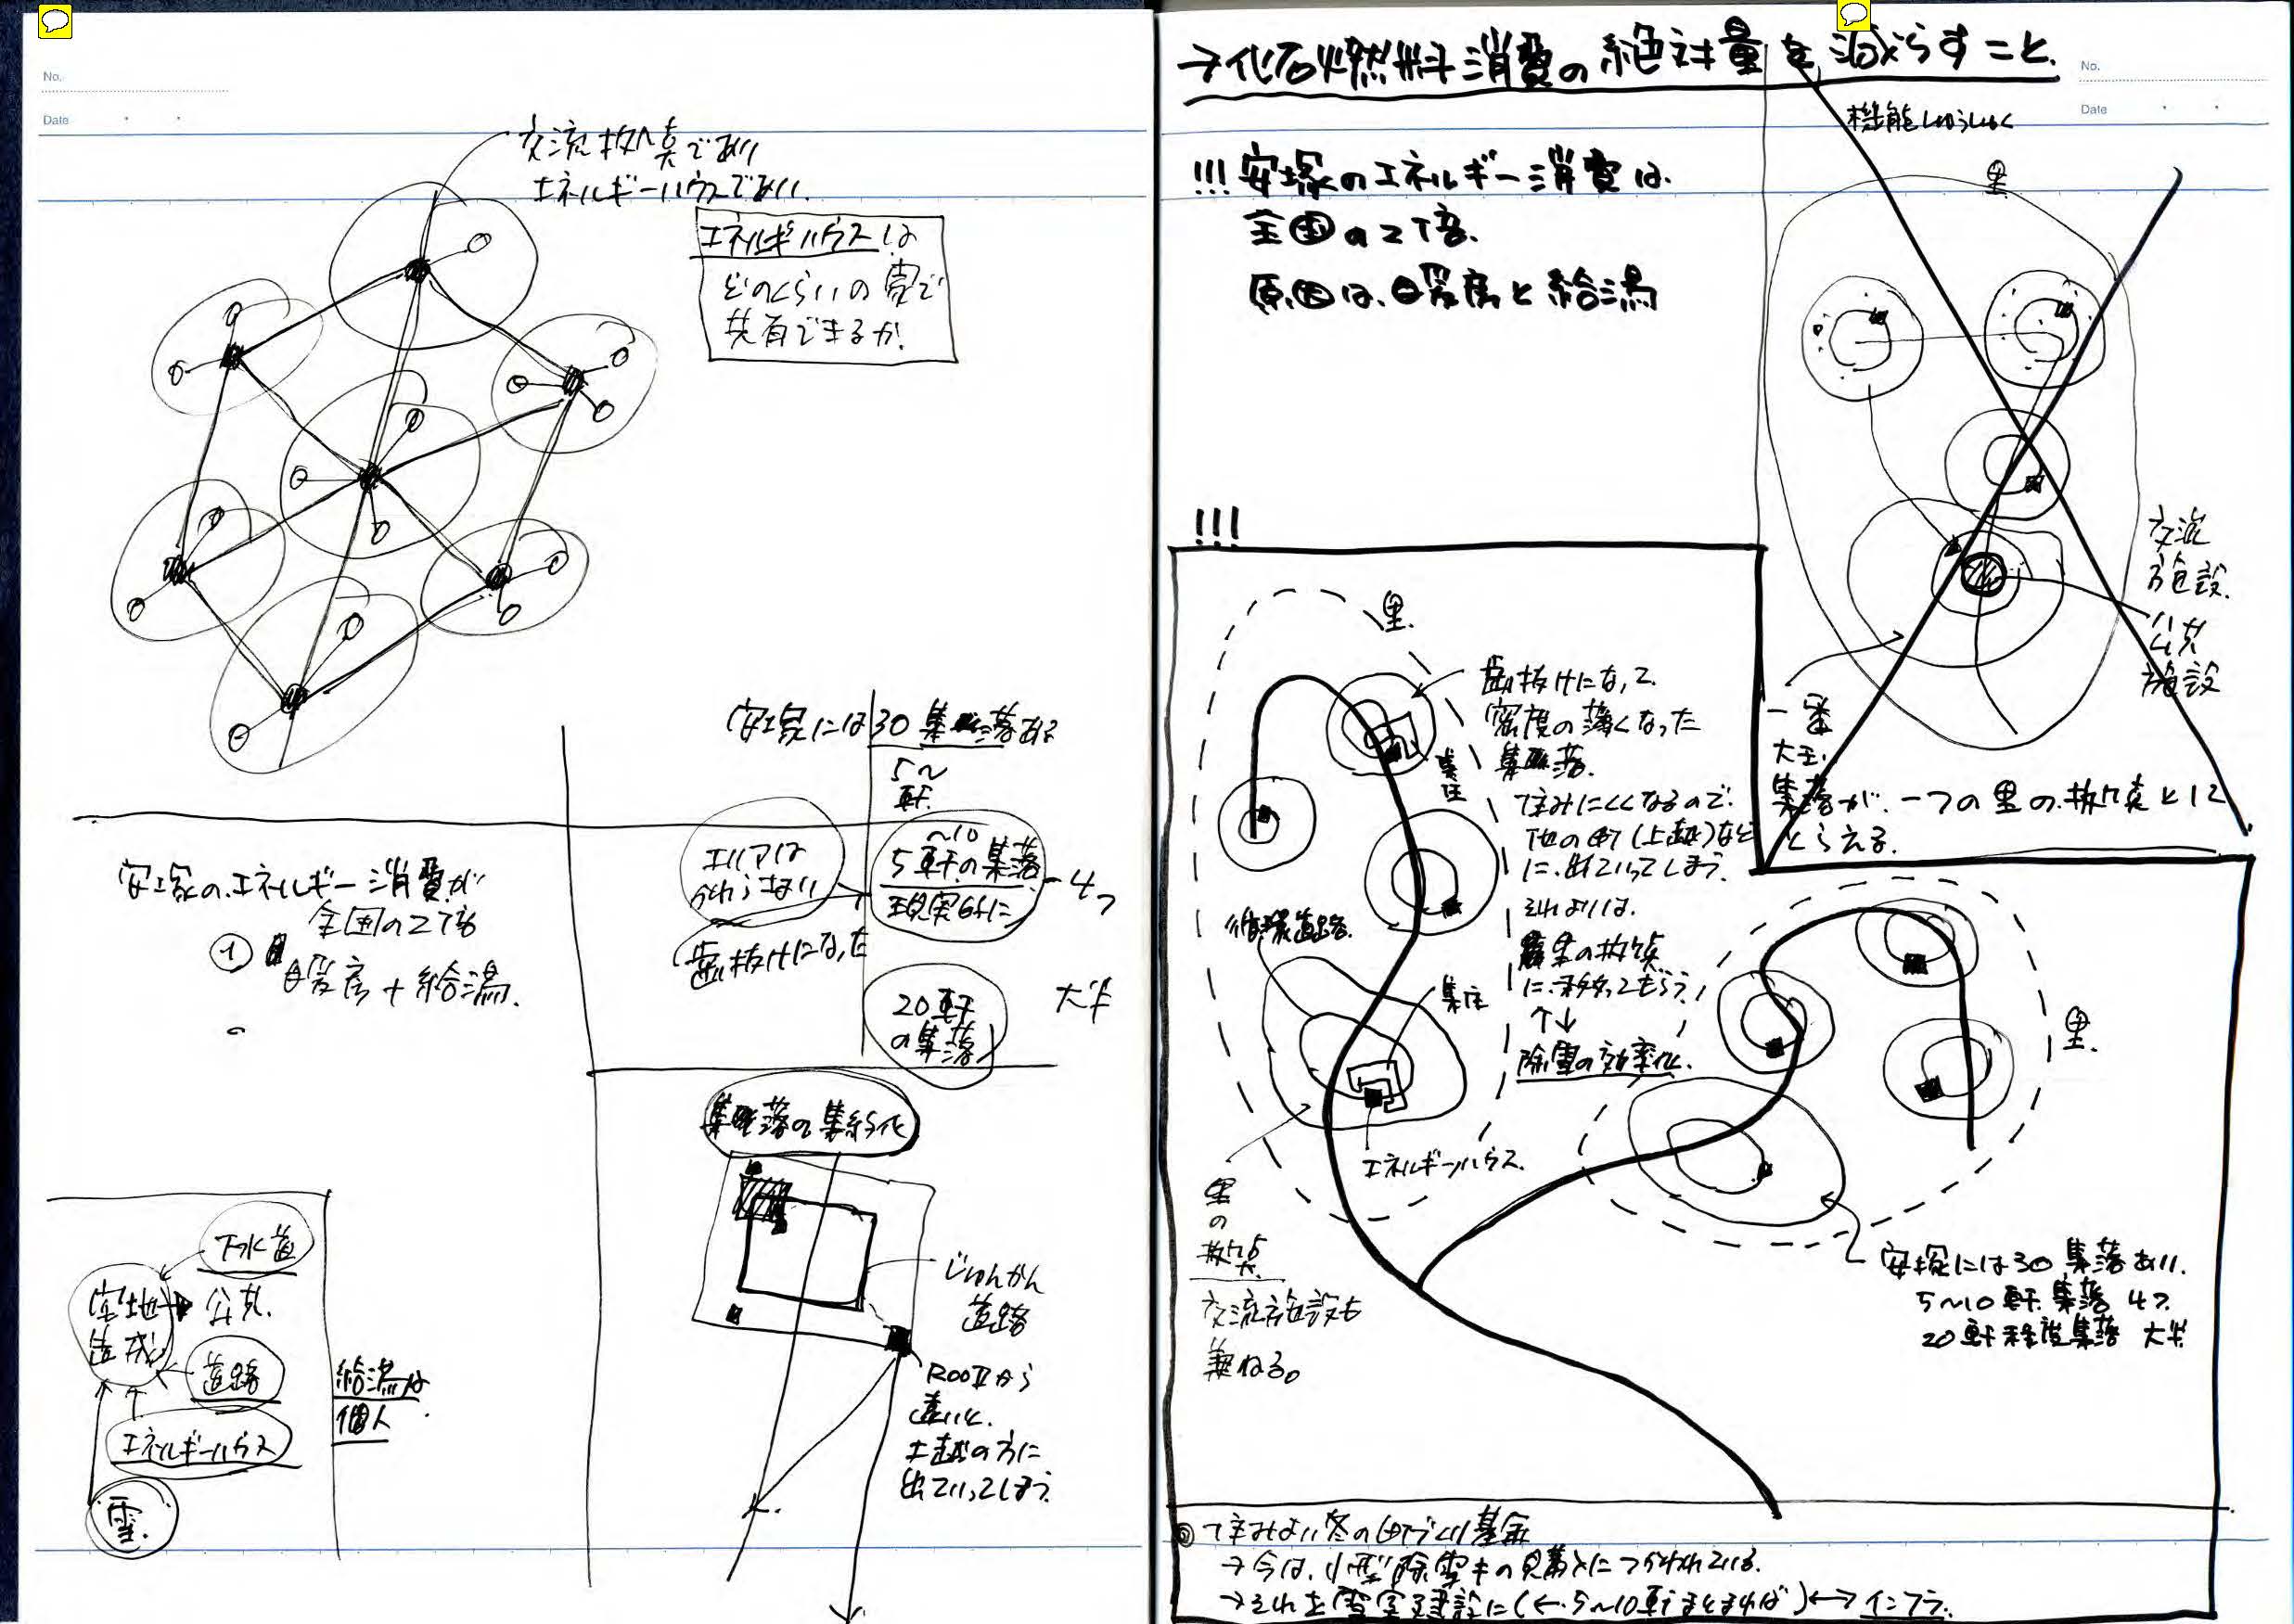 No.
Date
交流拠点であり
エネルギーハウスであり.
エネルギーハウスは
どのくらいの家で
共有できるか.
安塚には30集落ある
5〜
軒.
エリアは
かわらない
〜10
5軒の集落
現実的に
4つ
歯抜けになった
20軒
の集落
大半
安塚のエネルギー消費が
全国の2倍
①
暖房+給湯.
集落の集約化
じゅんかん
道路
下水道
宅地
造成
公共.
道路
エネルギーハウス
雪.
給湯は
個人.
から
遠いと.
上越の方に
出ていってしまう.
→化石燃料消費の絶対量を減らすこと.
No.
Date
機能しゅうしゅく
!!! 安塚のエネルギー消費は.
全国の2倍.
原因は、暖房と給湯
里
交流
施設.
公共
施設
一番
大きい
集落が、一つの里の拠点として
とらえる.
!!!
里.
歯抜けになって
密度の薄くなった
集落.
集住
住みにくくなるので.
他の町(上越)など
に、出ていってしまう.
それよりは.
里の拠点
に、移ってもらう.
↑↓
除雪の効率化.
循環道路.
集住
エネルギーハウス.
里
の
拠点
交流施設も
兼ねる。
里.
安塚には30集落あり.
5〜10軒集落 4つ
20軒程度集落 大半
◎住みよい冬の町づくり基金
→今は、小型除雪キの見落とにつかわれている.
→それを雪室建設に(←5〜10軒まとまれば)←→インフラ.